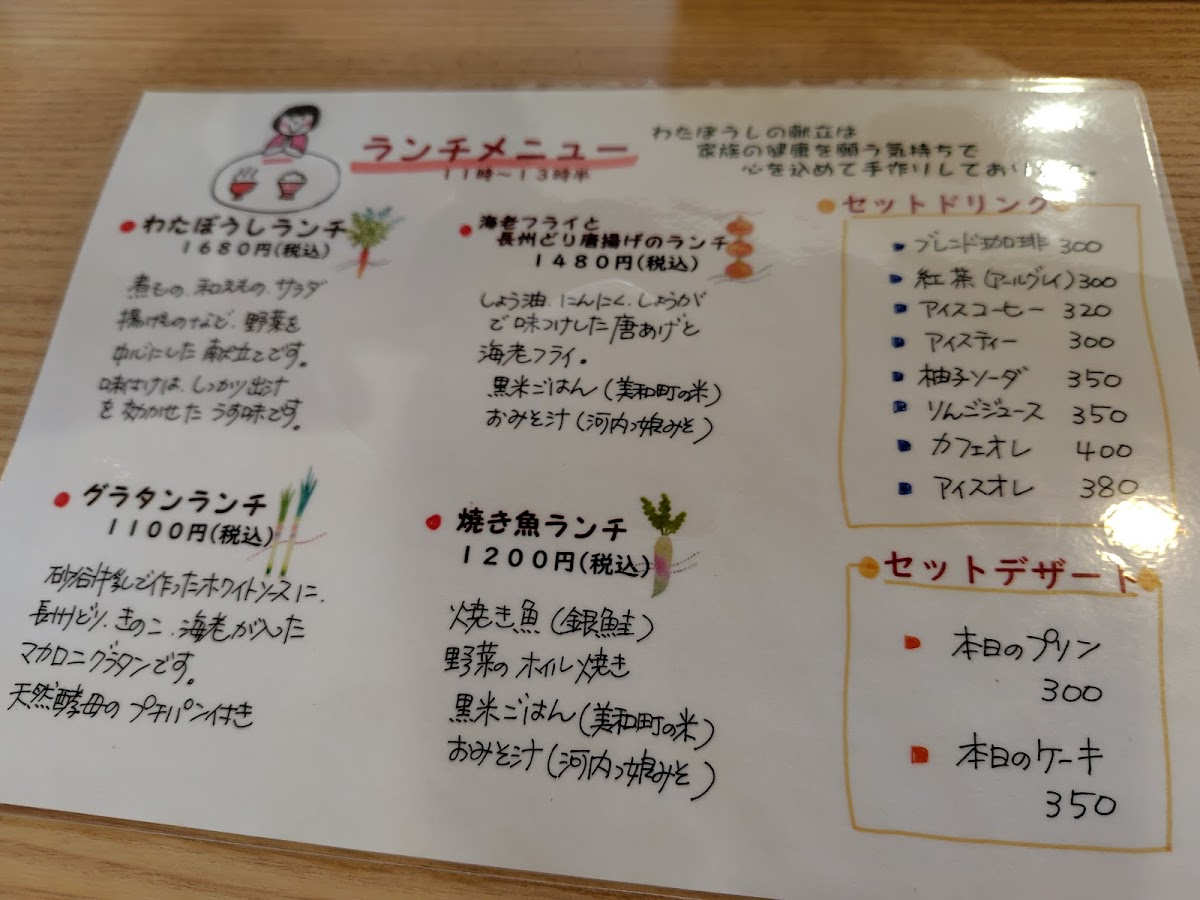 ランチメニュー
11時～13時半
わたぼうしの献立は
家族の健康を願う気持ちで
心を込めて手作りしており
わたぼうしランチ
1680円(税込)
煮もの、和えもの、サラダ
揚げものなど、野菜を
中心にした献立てです。
味付けは、しっかり出汁
を効かせたうす味です。
海老フライと
長州どり唐揚げのランチ
1480円(税込)
しょう油、にんにく、しょうが
で味つけした唐あげと
海老フライ。
黒米ごはん(美和町の米)
おみそ汁(河内っ娘みそ)
グラタンランチ
1100円(税込)
砂谷牛乳で作ったホワイトソースに、
長州どり、きのこ、海老が入った
マカロニグラタンです。
天然酵母のプチパン付き
焼き魚ランチ
1200円(税込)
焼き魚(銀鮭)
野菜のオイル焼き
黒米ごはん(美和町の米)
おみそ汁(河内っ娘みそ)
セットドリンク
ブレンド珈琲 300
紅茶(アールグレイ) 300
アイスコーヒー 320
アイスティー 300
柚子ソーダ 350
りんごジュース 350
カフェオレ 400
アイスオレ 380
セットデザート
本日のプリン
300
本日のケーキ
350